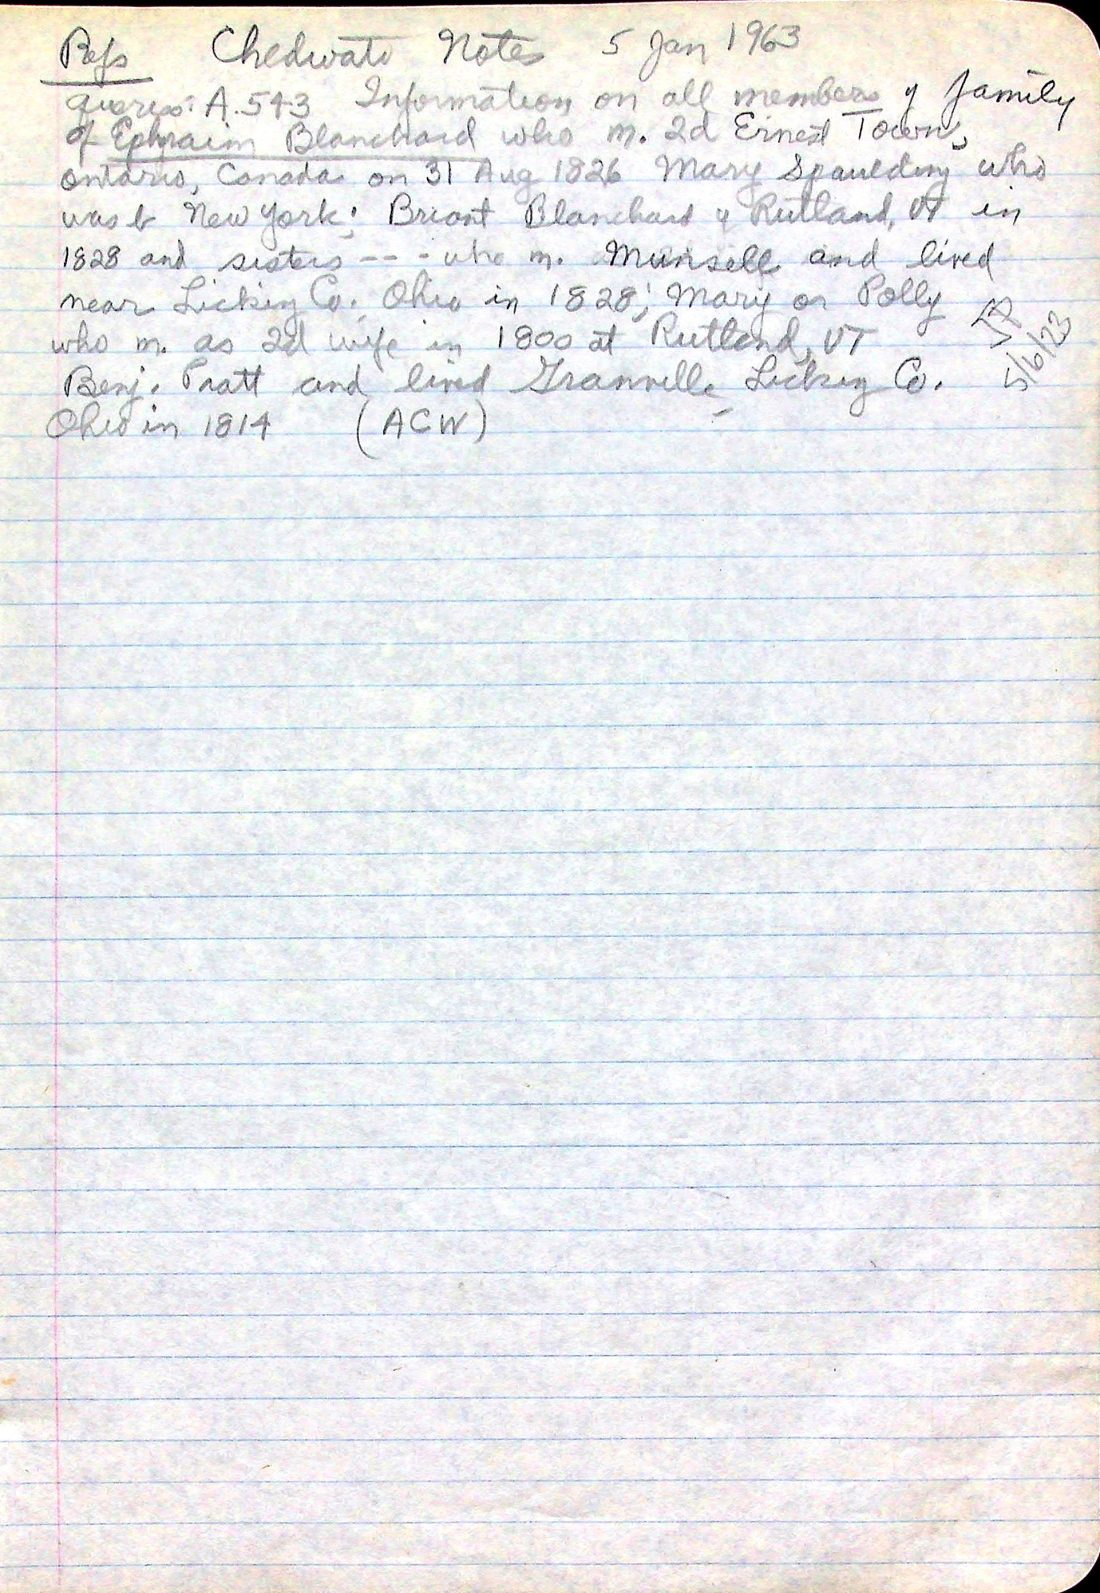 Refs Chedwato Notes 5 Jan 1963
queries: A.543 Information on all members of family
of Ephraim Blanchard who m. 2d Ernest Town,
Ontario, Canada on 31 Aug 1826 Mary Spaulding who
was b New York; Briant Blanchard of Rutland, VT in
1828 and sisters --- who m. Munsell and lived
near Licking Co. Ohio in 1828; Mary or Polly
who m. as 2d wife in 1800 at Rutland, VT
Benj. Pratt and lived Granville, Licking Co.
Ohio in 1814 (ACW)
5/6/23